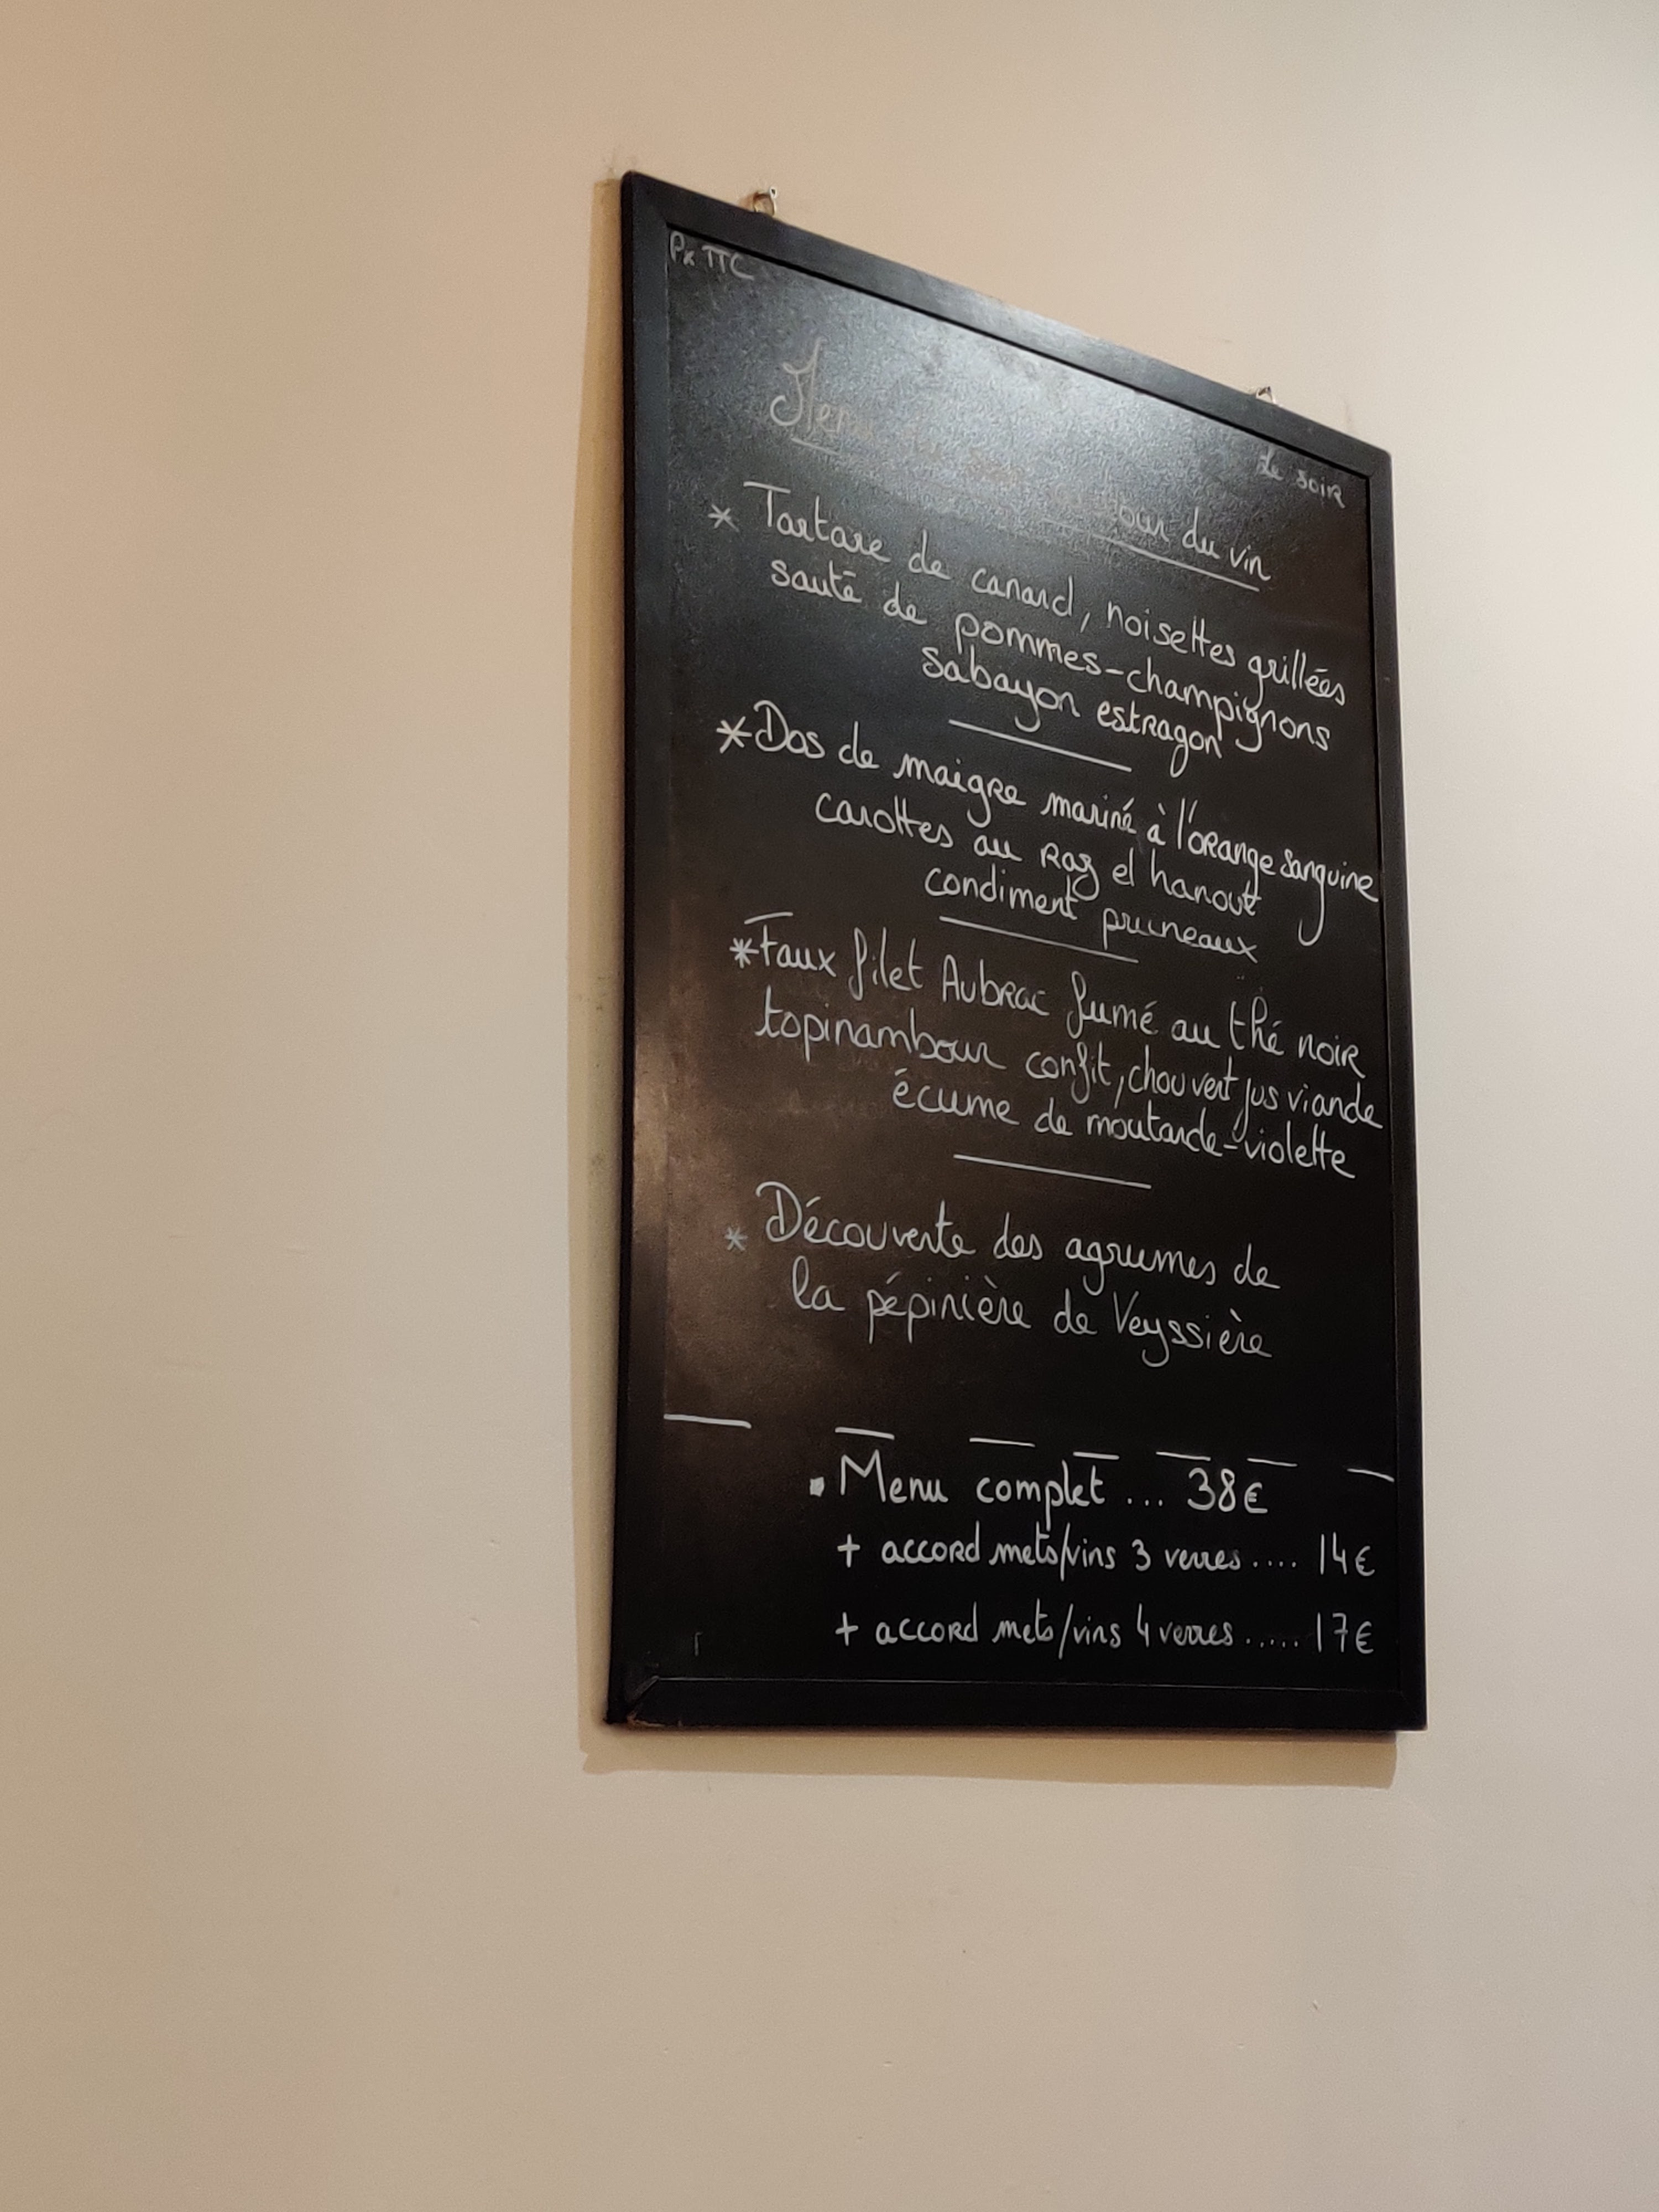 Px TTC
Le soir
Menu du soir autour du vin
* Tartare de canard, noisettes grillées
sauté de pommes-champignons
sabayon estragon
* Dos de maigre mariné à l'orange sanguine
carottes au raz el hanout
condiment pruneaux
* Faux filet Aubrac fumé au thé noir
topinambour confit, chou vert jus viande
écume de moutarde-violette
* Découverte des agrumes de
la pépinière de Veyssière
▪ Menu complet ... 38€
+ accord mets/vins 3 verres .... 14€
+ accord mets/vins 4 verres ..... 17€